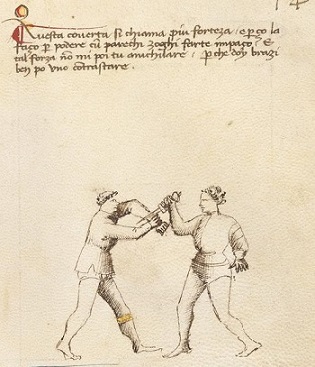 Questa coverta si chiama più forteza, e p(er)ço la
façço p(er) podere cu(m) parechi zoghi farte impaço. E
tal forza no(n) mi poi tu anichilare, p(er)che doy brazi
ben pò uno contrastare.